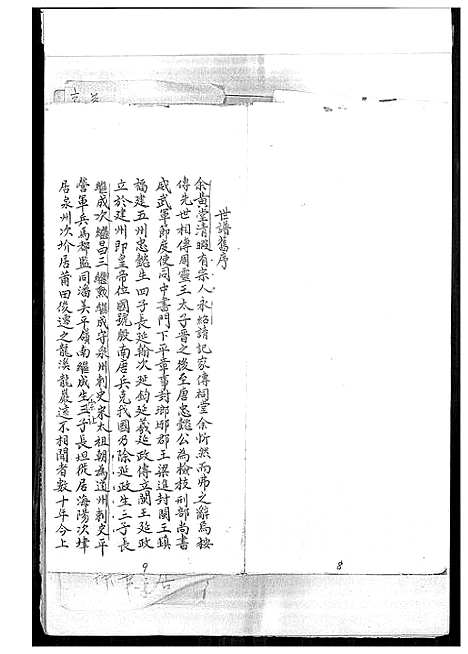 世譜舊序
余黃堂清暇有宗人永紹請記家傳祠堂余忻然而弗之辭焉按
傳先世相傳周靈王太子晉之後至唐忠懿公為檢校刑部尚書
威武軍節度使同中書門下平章事封瑯琊郡王梁進封閩王鎮
福建五州忠懿生四子長延翰次延鈞延羲延政傳立閩王延政
立於建州即皇帝位國號殷南唐兵克我國乃除延政生三子長
繼成次繼昌三繼勲繼成守泉州刺史宋太祖朝為道州刺史平
營軍兵馬都監同潘美平嶺南繼成生三子長坦徙居海陽次埲
居泉州次圿居莆田後遷之龍溪龍巖遠不相聞者數十年今上
9
8